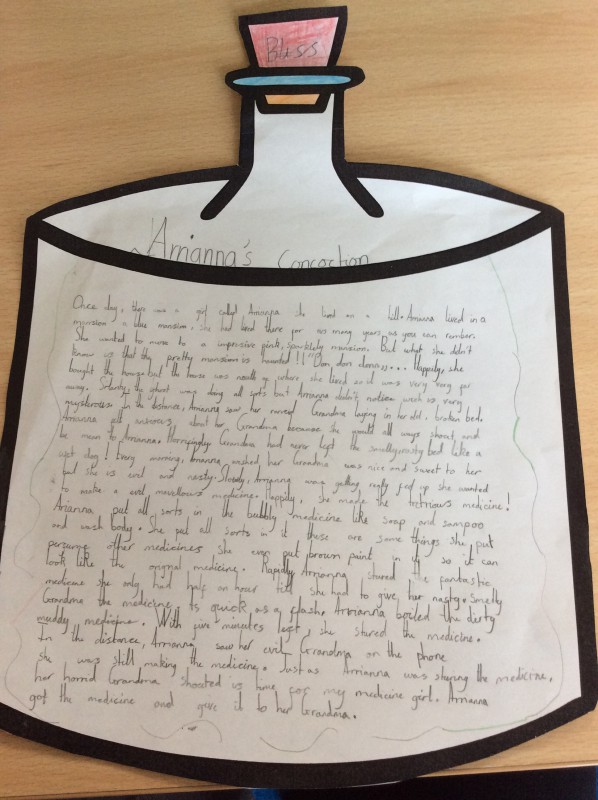 Bliss
Arrianna's Concoction
Once day, there was a girl called Arrianna she lived on a hill. Arianna lived in a
mansion a blue mansion, she had lived there for as many years as you can rember.
She wanted to move to a impresive pink, sparkely mansion. But what she didn't
know is that the pretty mansion is haunted!! "Don don donn.... Happily, she
bought the house but the house was north of where she lived so it was very very far
away. Silently, the ghost was doing all sorts but Arianna didn't notice wich is very
mysterous. In the distance, Arrianna saw her Grandma laying in her old, broken bed.
Arrianna felt anxious about her Grandma because she would all ways shout and
be mean to Arrianna. Horrifyingly Grandma had never left the smelly nasty bed like a
sick dog! Every morning, Arrianna wished her Grandma was nice and sweet to her
but she is evil and nasty. Slowly, Arrianna was getting really fed up she wanted
to make a evil, marvellous medicine. Happily, she made the medicine!
Arianna put all sorts in the bubbly medicine like soap and sampoo
and wash body. She put all sorts in it these are some things she put
perfume other medicines she even put brown paint in it so it can
look like the orignal medicine. Rapidly, Arrianna stired the fantastic
medicine she only had half an hour till she had to give her nasty, smelly
Grandma the medicine. As quick as a flash, Arrianna boiled the dirty
muddy medicine. With five minutes left, she stired the medicine.
In the distance, Arrianna saw her evil Grandma on the phone
She was still making the medicine. Just as Arrianna was stiring the medicine,
her horrid Grandma shouted is time for my medicine girl. Arrianna
got the medicine and gave it to her Grandma.